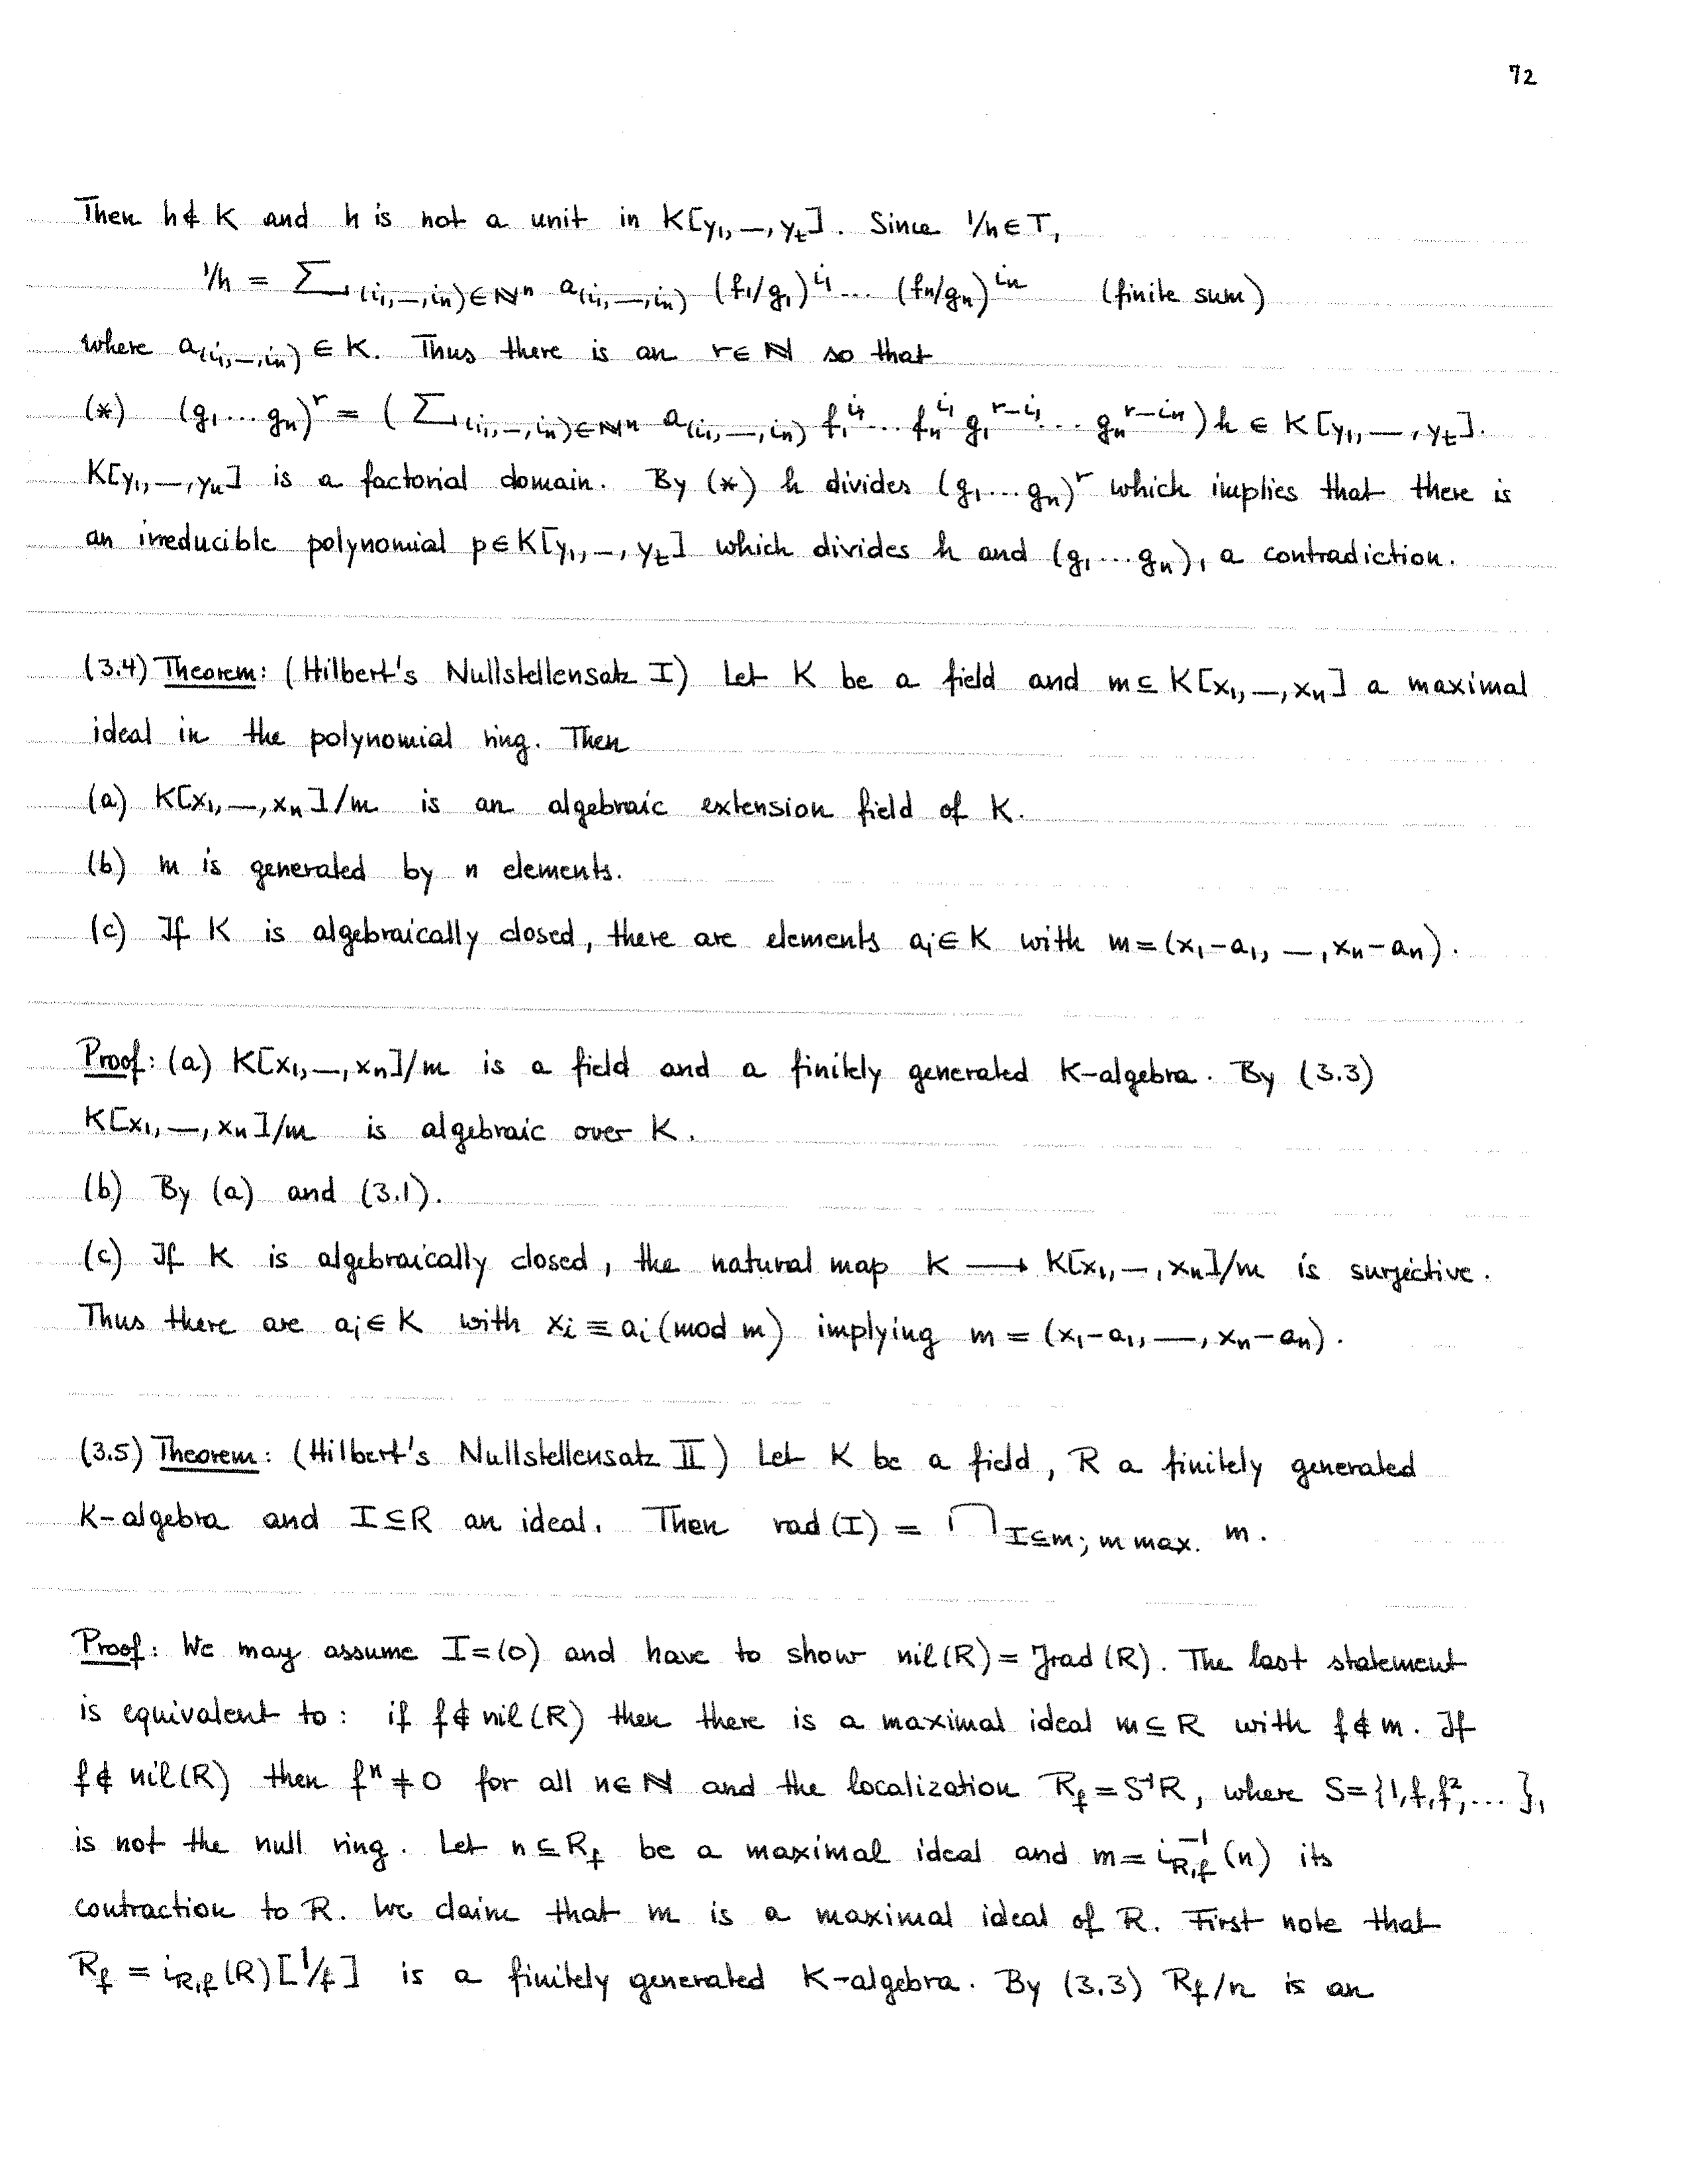 72
Then h ∉ K and h is not a unit in K[y₁, —, yₜ]. Since 1/h ∈ T,
1/h = ∑_(i₁,—,iₙ)∈ℕⁿ a_(i₁,—,iₙ) (f₁/g₁)^i₁ ... (fₙ/gₙ)^iₙ (finite sum)
where a_(i₁,—,iₙ) ∈ K. Thus there is an r ∈ ℕ so that
(*) (g₁...gₙ)^r = ( ∑_(i₁,—,iₙ)∈ℕⁿ a_(i₁,—,iₙ) f₁^i₁ ... fₙ^i₁ g₁^r-i₁ ... gₙ^r-iₙ ) h ∈ K[y₁, —, yₜ].
K[y₁, —, yₙ] is a factorial domain. By (*) h divides (g₁...gₙ)^r which implies that there is
an irreducible polynomial p ∈ K[y₁, —, yₜ] which divides h and (g₁...gₙ), a contradiction.
(3.4) Theorem: (Hilbert's Nullstellensatz I) Let K be a field and m ⊆ K[x₁, —, xₙ] a maximal
ideal in the polynomial ring. Then
(a) K[x₁, —, xₙ]/m is an algebraic extension field of K.
(b) m is generated by n elements.
(c) If K is algebraically closed, there are elements aᵢ ∈ K with m = (x₁-a₁, —, xₙ-aₙ).
Proof: (a) K[x₁, —, xₙ]/m is a field and a finitely generated K-algebra. By (3.3)
K[x₁, —, xₙ]/m is algebraic over K.
(b) By (a) and (3.1).
(c) If K is algebraically closed, the natural map K ⟶ K[x₁, —, xₙ]/m is surjective.
Thus there are aᵢ ∈ K with xᵢ ≡ aᵢ (mod m) implying m = (x₁-a₁, —, xₙ-aₙ).
(3.5) Theorem: (Hilbert's Nullstellensatz II) Let K be a field, R a finitely generated
K-algebra and I ⊆ R an ideal. Then rad (I) = ⋂_I⊆m; m max. m.
Proof: We may assume I = (0) and have to show nil (R) = Jrad (R). The last statement
is equivalent to: if f ∉ nil (R) then there is a maximal ideal m ⊆ R with f ∉ m. If
f ∉ nil (R) then fⁿ ≠ 0 for all n ∈ ℕ and the localization R_f = S⁻¹R, where S = {1, f, f², ... },
is not the null ring. Let n ⊆ R_f be a maximal ideal and m = i_R,f⁻¹ (n) its
contraction to R. We claim that m is a maximal ideal of R. First note that
R_f = i_R,f (R) [1/f] is a finitely generated K-algebra. By (3.3) R_f/n is an